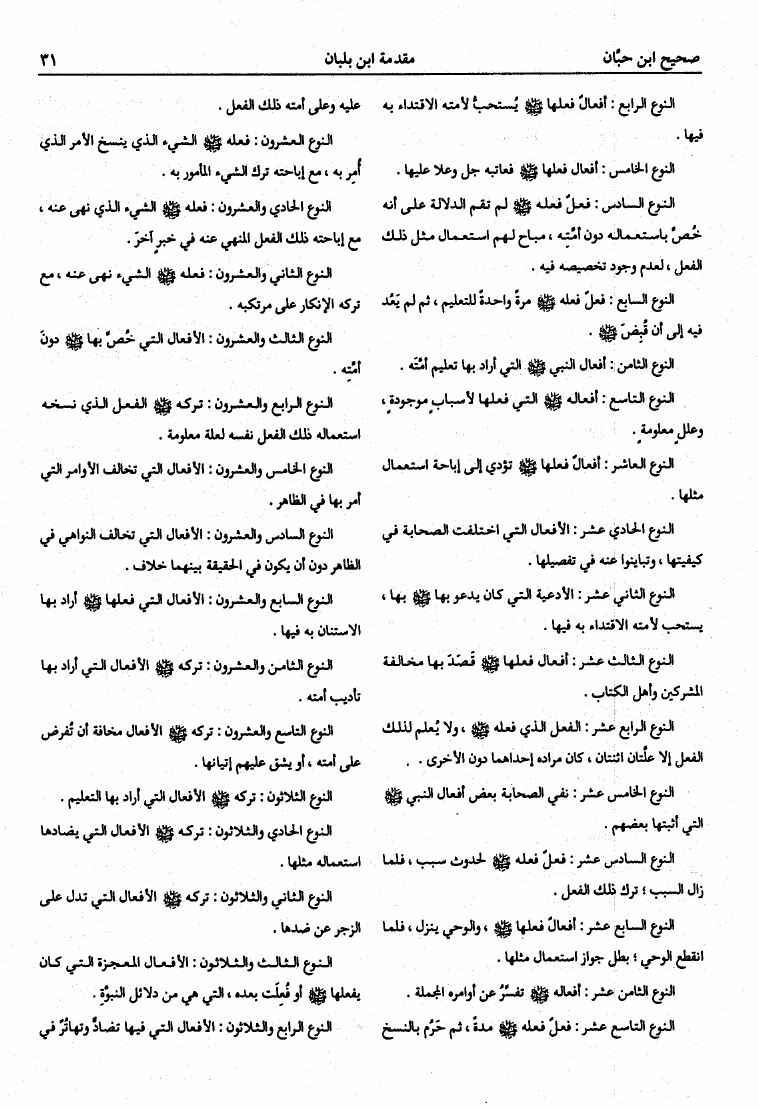 صحيح ابن حبَّان
مقدمة ابن بلبان
٣١
النوع الرابع : أفعالٌ فعلها ﷺ يُستحبُّ لأمته الاقتداء به
فيها .
النوع الخامس : أفعال فعلها ﷺ فعاتبه جل وعلا عليها .
النوع السادس : فعلٌ فعله ﷺ لم تقم الدلالة على أنه
خُصَّ باستعماله دون أمَّتِه ، مباح لهم استعمال مثل ذلك
الفعل ، لعدم وجود تخصيصه فيه .
النوع السابع : فعلٌ فعله ﷺ مرةً واحدةً للتعليم ، ثم لم يَعُد
فيه إلى أن قُبِضَ ﷺ .
النوع الثامن : أفعال النبي ﷺ التي أراد بها تعليم أمَّته .
النوع التاسع : أفعاله ﷺ التي فعلها لأسبابٍ موجودةٍ ،
وعللٍ معلومةٍ .
النوع العاشر : أفعالٌ فعلها ﷺ تؤدي إلى إباحة استعمال
مثلها .
النوع الحادي عشر : الأفعال التي اختلفت الصحابة في
كيفيتها ، وتباينوا عنه في تفصيلها .
النوع الثاني عشر : الأدعية التي كان يدعو بها ﷺ بها ،
يستحب لأمته الاقتداء به فيها .
النوع الثالث عشر : أفعال فعلها ﷺ قَصَدَ بها مخالفة
المشركين وأهل الكتاب .
النوع الرابع عشر : الفعل الذي فعله ﷺ ، ولا يُعلم لذلك
الفعل إلا علَّتان اثنتان ، كان مراده إحداهما دون الأخرى .
النوع الخامس عشر : نفي الصحابة بعض أفعال النبي ﷺ
التي أثبتها بعضهم .
النوع السادس عشر : فعلٌ فعله ﷺ لحدوث سبب ، فلما
زال السبب ؛ ترك ذلك الفعل .
النوع السابع عشر : أفعالٌ فعلها ﷺ ، والوحي ينزل ، فلما
انقطع الوحي ؛ بطل جواز استعمال مثلها .
النوع الثامن عشر : أفعاله ﷺ تفسِّرُ عن أوامره المجملة .
النوع التاسع عشر : فعلٌ فعله ﷺ مدةً ، ثم حَرُم بالنسخ
عليه وعلى أمته ذلك الفعل .
النوع العشرون : فعله ﷺ الشيء الذي ينسخ الأمر الذي
أُمِر به ، مع إباحته ترك الشيء المأمور به .
النوع الحادي والعشرون : فعله ﷺ الشيء الذي نهى عنه ،
مع إباحته ذلك الفعل المنهي عنه في خبرٍ آخرَ .
النوع الثاني والعشرون : فعله ﷺ الشيء نهى عنه ، مع
تركه الإنكار على مرتكبه .
النوع الثالث والعشرون : الأفعال التي خُصَّ بها ﷺ دونَ
أمَّتِه .
النوع الرابع والعشرون : تركه ﷺ الفعل الذي نسخه
استعماله ذلك الفعل نفسه لعلة معلومة .
النوع الخامس والعشرون : الأفعال التي تخالف الأوامر التي
أمر بها في الظاهر .
النوع السادس والعشرون : الأفعال التي تخالف النواهي في
الظاهر دون أن يكون في الحقيقة بينهما خلاف .
النوع السابع والعشرون : الأفعال التي فعلها ﷺ أراد بها
الاستنان به فيها .
النوع الثامن والعشرون : تركه ﷺ الأفعال التي أراد بها
تأديب أمته .
النوع التاسع والعشرون : تركه ﷺ الأفعال مخافة أن تُفرض
على أمته ، أو يشق عليهم إتيانها .
النوع الثلاثون : تركه ﷺ الأفعال التي أراد بها التعليم .
النوع الحادي والثلاثون : تركه ﷺ الأفعال التي يضادها
استعماله مثلها .
النوع الثاني والثلاثون : تركه ﷺ الأفعال التي تدل على
الزجر عن ضدها .
النوع الثالث والثلاثون : الأفعال المعجزة التي كان
يفعلها ﷺ أو فُعِلَت بعده ، التي هي من دلائل النبوَّةِ .
النوع الرابع والثلاثون : الأفعال التي فيها تضادٌّ وتهاتُرٌ في